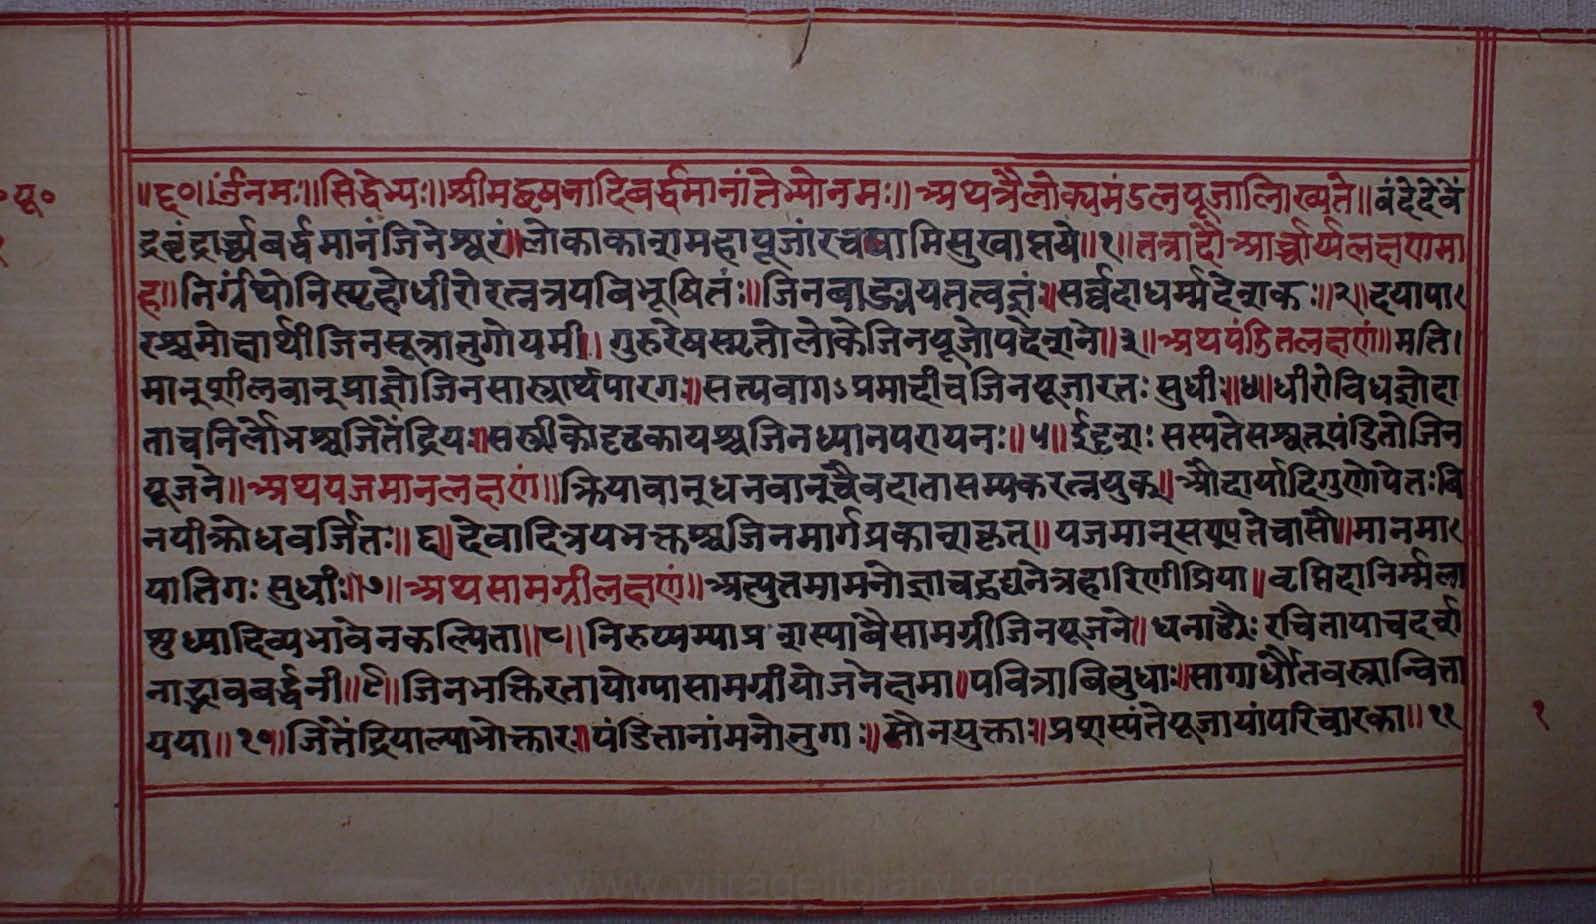 ॥६०॥ ॐनमः॥सिद्धेभ्यः॥श्रीमद्वृषभादिबर्द्धमानांतेभ्योनमः॥ अथत्रैलोक्यमंडलपूजालिख्यते॥ वंदेदेवें
द्रबृंद्रार्च्यबर्द्धमानंजिनेश्वरं॥लोकाकाशमहापूजांरचयामिसुखाप्तये॥१॥तत्रादौआर्च्चार्यलक्षणमा
ह॥निर्ग्रंथोनिस्पृहोधीरोरत्नत्रयबिभूषितंः॥जिनबाङ्मयतत्वज्ञंः॥सर्व्वदाधर्म्मदेशकः॥२॥दयापा
रश्चमोक्षार्थीजिनसूत्रानुगोयमी॥गुरुरेषस्मृतोलोकेजिनपूजोपदेशने॥३॥अथपंडितलक्षणं॥मति।
मान्शीलवान्प्राज्ञोजिनसास्त्रार्थपारगः॥सत्यवागऽप्रमादीचजिनपूजारतः सुधीः॥४॥धीरोविधज्ञोदा
ताचनिर्लोभश्चजितेंद्रियः॥सस्त्रीकोदृढकायश्चजिनध्यानपरायनः॥५॥ईदृशः सस्यतेसश्वत्पंडितोजिन
पूजने॥अथयजमानलक्षणं॥क्रियावान्धनवान्चैवदातासम्यकरत्नयुक्॥औदार्यादिगुणोपेतःवि
नयीक्रोधवर्जितः॥६॥देवादित्रयभक्तश्चजिनमार्गप्रकाशकृत्॥यजमान्सस्यतेचासौ॥मानमा
यातिगः सुधीः॥७॥अथसामग्रीलक्षणं॥अत्युतमामनोज्ञाचहृद्यनेत्रहारिणीप्रिया॥तृप्तिदानिर्म्मला
शुध्यादिव्यभावेनकल्पिता॥८॥निरुप्यम्याप्रशस्याबैसामग्रीजिनपूजने॥धनाढ्यैः रचितायाचदर्श
नाद्भावबर्द्धनी॥९॥जिनभक्तिरतायोग्यासामग्रीयोजनेक्षमा॥पवित्राबिबुधाः॥सागार्धौतवस्त्रान्विता
यया॥१०॥जितेंद्रियाल्पाभोक्तारः॥पंडितानांमनोनुगाः॥मौनयुक्ताः॥प्रशस्यंतेपूजायांपरिचारका॥११
॰पू॰
१
१
www.vitragelibrary.org